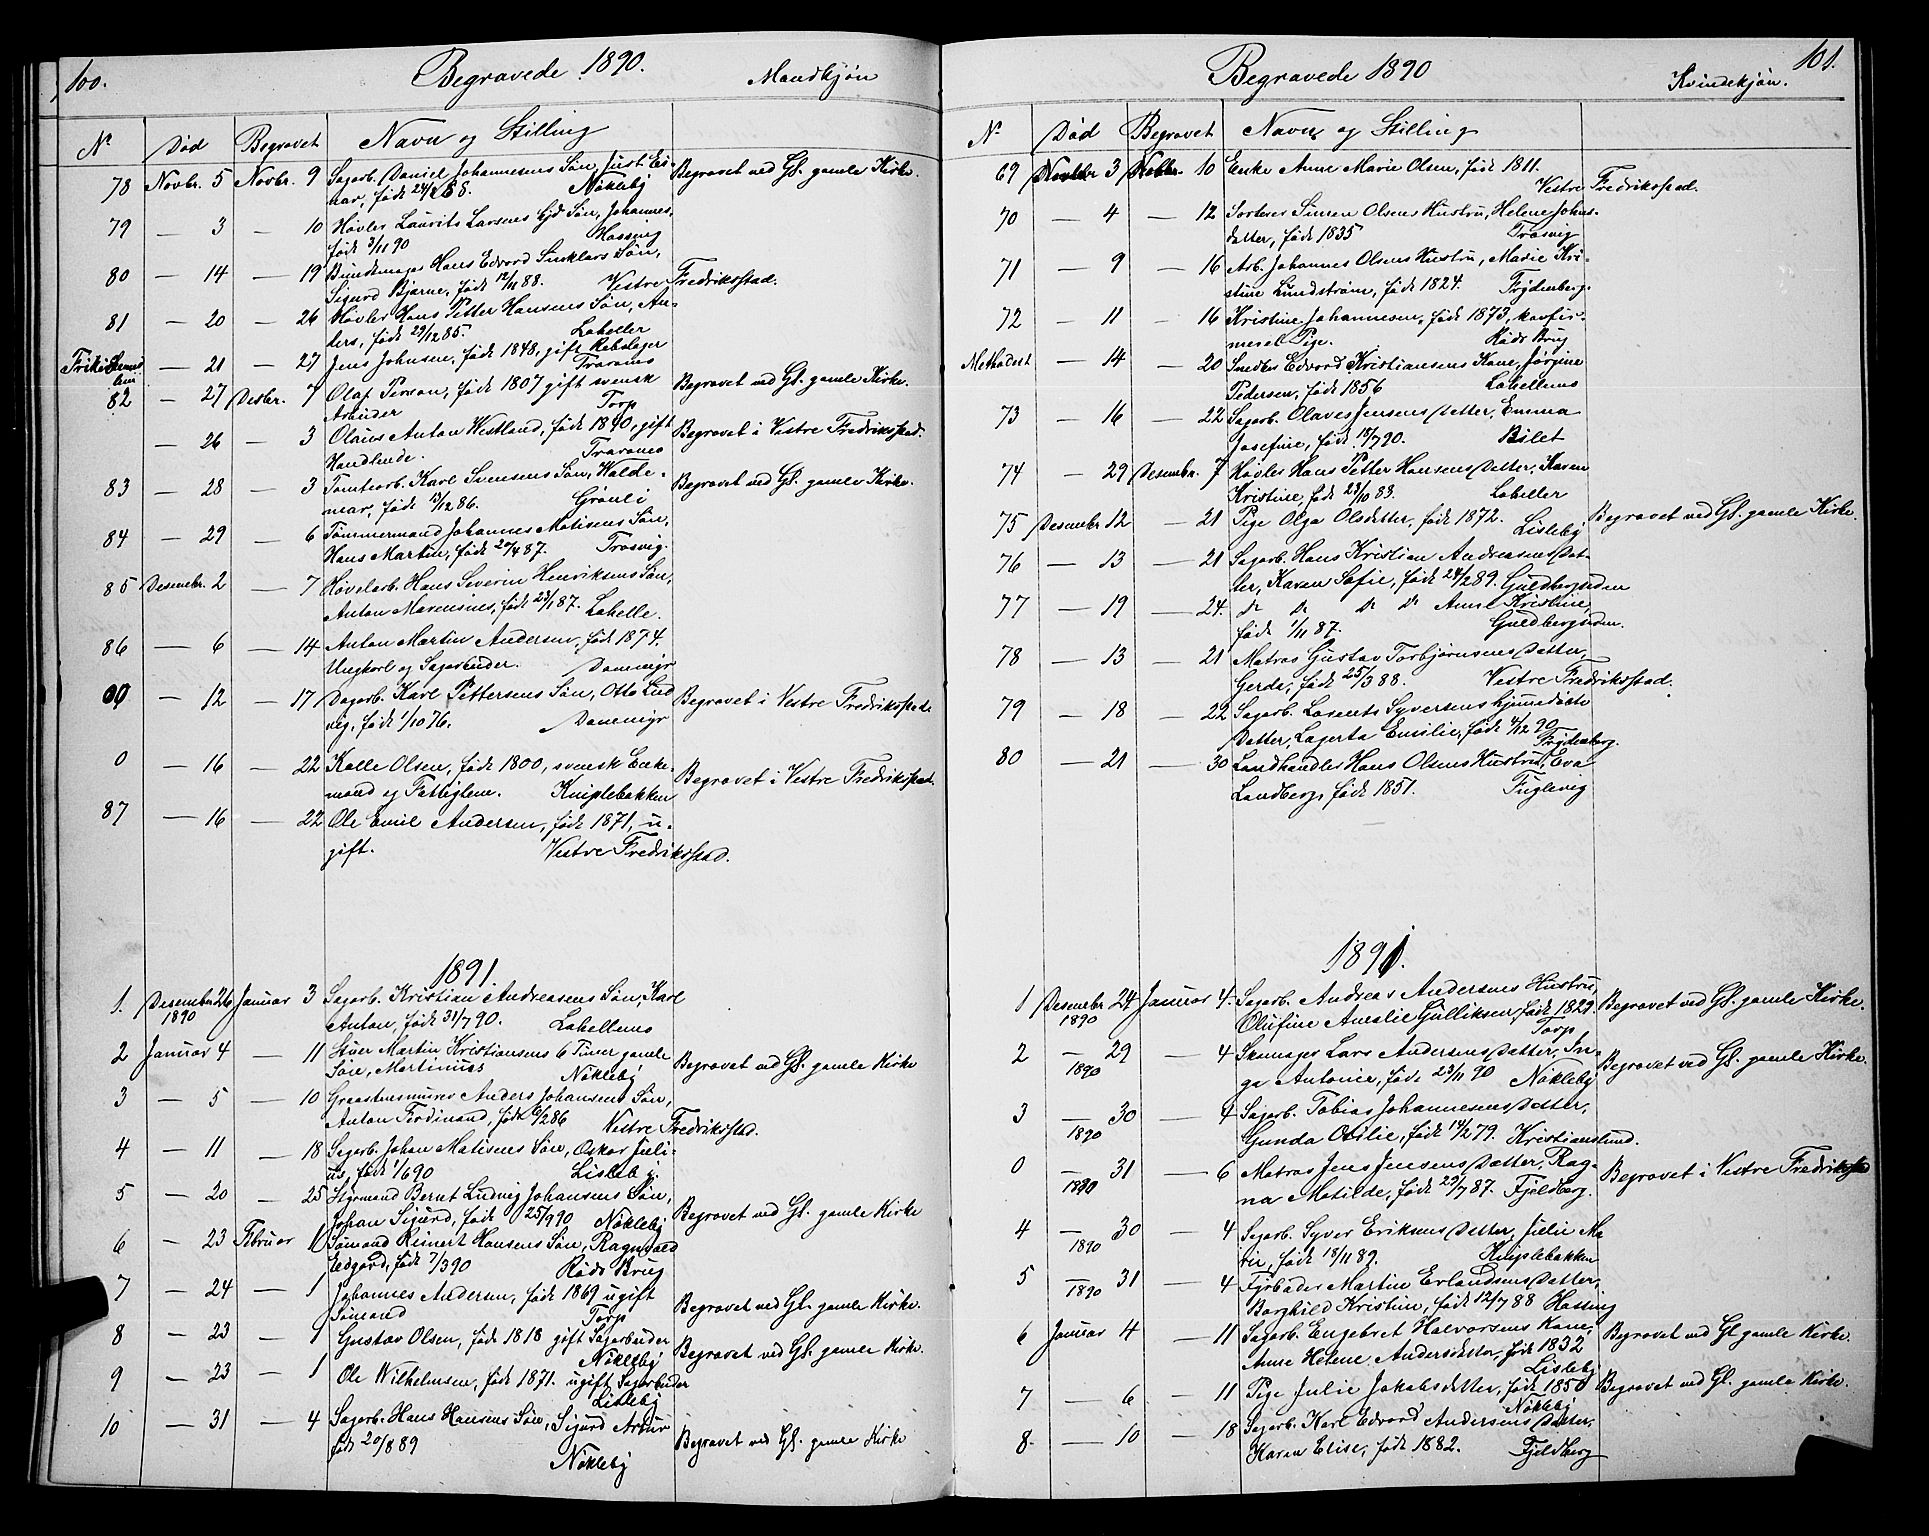 100.
Begravede 1890.
Mandkjøn
Nº Død Begravet Navn og Stilling
78 Novbr. 5 Novbr. 9 Sagarb. Daniel Johannesens Søn, Just Ei-
nar, født 24/2 88. Nøkleby Begravet ved Gl. gamle Kirke.
79 — 3 — 10 Høvler Laurits Larsens Søn, Johannes,
født 3/11 90 Hassing
80 — 14 — 19 Hans Edvard Søn,
Sigurd Bjarne, født 12/11 88. Vestre Fredriksstad.
81 — 20 — 26 Høvler Hans Petter Hansens Søn, An-
ders, født 29/12 85. Labeller
— 21 — 27 Jens Johnsen, født 1848, gift Rebslager
Traranes
82 — 27 Desbr. 7 Olaf Person, født 1807 gift svensk
Arbeider Torp Begravet ved Gl. gamle Kirke.
— 26 — 3 Olaus Anton Westlund, født 1840, gift
Handlende. Traranes Begravet i Vestre Fredriksstad.
83 — 28 — 3 Tomtearb. Karl Svensens Søn, Walde-
mar, født 13/12 86. Grønli Begravet ved Gl. gamle Kirke.
84 — 29 — 6 Tømmermand Johannes Matisens Søn,
Hans Martin, født 20/4 87. Trosvig.
85 Desembr. 2 — 7 Høvelarb. Hans Severin Henriksens Søn,
Anton Marensius, født 23/1 87. Labelle.
86 — 6 — 14 Anton Martin Andersen, født 1874.
Ungkarl og Sagarbeider. Dammyr
0 — 12 — 17 Dagarb. Karl Pettersens Søn, Otto Lud
vig, født 1/10 76. Dammyr Begravet i Vestre Fredriksstad.
0 — 16 — 22 Kalle Olsen, født 1800, svensk Enke-
mand og Fattiglem. Kniplebakken Begravet i Vestre Fredriksstad.
87 — 16 — 22 Ole Emil Andersen, født 1871, u-
gift. Vestre Fredriksstad.
1891.
1. Desember 26 Januar 3 Sagarb. Kristian Andreasens Søn, Karl
1890 Anton, født 31/7 90. Labellens
2 Januar 4 — 11 Stuer Martin Kristiansens 6 Timer gamle
Søn, Martinus Nøkleby Begravet ved Gl. gamle Kirke
3 — 5 — 10 Anders Johansens Søn,
Anton Ferdinand, født 6/2 86 Vestre Fredriksstad.
4 — 11 — 18 Sagarb. Johan Matisens Søn, Oskar Juli-
us, født 1/6 90 Lisleby.
5 — 20 — 25 Styrmand Bernt Ludvig Johansens Søn,
Johan Sigurd, født 25/9 90 Nøkleby Begravet ved Gl. gamle Kirke
6 — 23 Februar 1 Sømand Reinert Hansens Søn, Ragnvald
Edgard, født 7/3 90 Røds Brug
7 — 24 — 1 Johannes Andersen, født 1869 ugift
Sømand Torp Begravet ved Gl. gamle Kirke.
8 — 23 — 1 Gustav Olsen, født 1818 gift Sagarbeider
Nøkleby Begravet ved Gl. gamle Kirke.
9 — 23 — 1 Ole Wilhelmsen, født 1871. ugift Sagarbeider
Lisleby
10 — 31 — 4 Sagarb. Hans Hansens Søn, Sigurd Artur
født 20/8 89 Nøkleby Begravet ved Gl. gamle Kirke
101.
Begravede 1890
Kvindekjøn.
Nº Død Begravet Navn og Stilling
69 Novbr 3 Novbr. 10 Enke Anne Marie Olsen, født 1811.
Vestre Fredriksstad.
70 — 4 — 12 Sorterer Simen Olsens Hustru, Helene Johns-
datter, født 1835 Trosvig
71 — 9 — 16 Arb. Johannes Olsens Hustru, Marie Kri-
stine Lundstrøm, født 1824. Frydenberg.
72 — 11 — 16 Kristine Johannesen, født 1873, konfir-
meret Pige. Røds Brug
Methodist — 14 — 20 Snedker Edvard Kristiansens Kone, Jørgine
Pedersen, født 1856 Labellens
73 — 16 — 22 Sagarb. Olaves Jensens Datter, Emma
Josefine, født 18/7 90. Bilet
74 — 29 Desembr. 7 Høvler Hans Petter Hansens Datter, Karen
Kristine, født 23/10 83. Labeller
75 Desember 12 — 21 Pige Olga Olsdatter, født 1872. Lisleby Begravet ved Gl. gamle Kirke.
76 — 13 — 21 Sagarb. Hans Kristian Andreasens Dat-
ter, Karen Sofie, født 24/2 89. Guldbergruden
77 — 19 — 24. Do Do Do Do Anne Kristine,
født 1/11 87. Guldbergruden.
78 — 13 — 21 Matros Gustav Torbjørnsens Datter,
Gerda, født 25/3 88. Vestre Fredriksstad.
79 — 18 — 22 Sagarb. Laurents Syversens hjemdøbte
Datter, Lagerta Emilie, født 4/12 90
Frydenberg.
80 — 21 — 30 Landhandler Hans Olsens Hustru, Eva
Landberg, født 1851. Fuglevig
1891.
1 Desembr 24 Januar 4. Sagarb. Andreas Andersens Hustru,
1890 Olufine Amalie Gulliksen, født 1829. Begravet ved Gl. gamle Kirke.
Torp
2 — 29 — 4 Skomager Lars Andersens Datter, In-
1890 ga Antonie, født 23/11 90 Nøkleby Begravet ved Gl. gamle Kirke.
3 — 30 — 4 Sagarb. Tobias Johannesens Datter,
1890 Gunda Otilie, født 14/2 79. Kristianslund.
0 — 31 — 6 Matros Jens Jensens Datter, Rag-
1890 na Matilde, født 29/7 87. Fjeldberg. Begravet i Vestre Fredriksstad
4 — 30 — 4 Sagarb. Syver Eriksens Datter, Julie Ma
1890 rie, født 18/11 89. Kniplebakken
5 — 31 — 4 Fyrbøder Martin Erlandsens Datter,
1890 Borghild Kristine, født 12/7 88 Hassing
6 Januar 4 — 11 Sagarb. Engebret Halvorsens Kone,
Anne Helene Andersdatter, født 1832 Begravet ved Gl gamle Kirke.
Lisleby
7 — 6 — 11 Pige Julie Jakobsdatter, født 1850 Begravet ved Gl. gamle Kirke.
Nøkleby
8. — 10 — 18 Sagarb. Karl Edvard Andersens Datter,
Karen Elise, født 1882. Fjeldberg